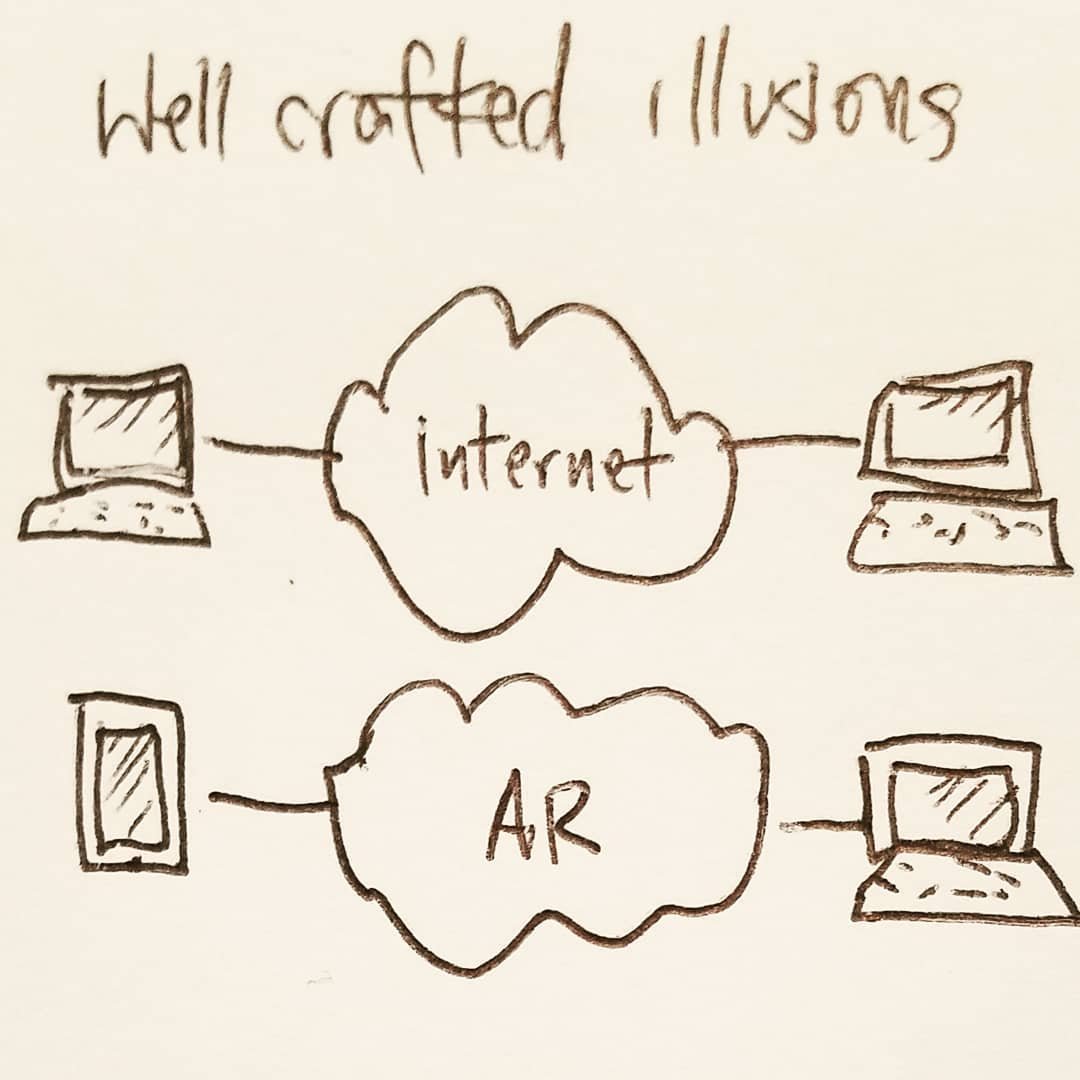 Well crafted illusions
internet
AR